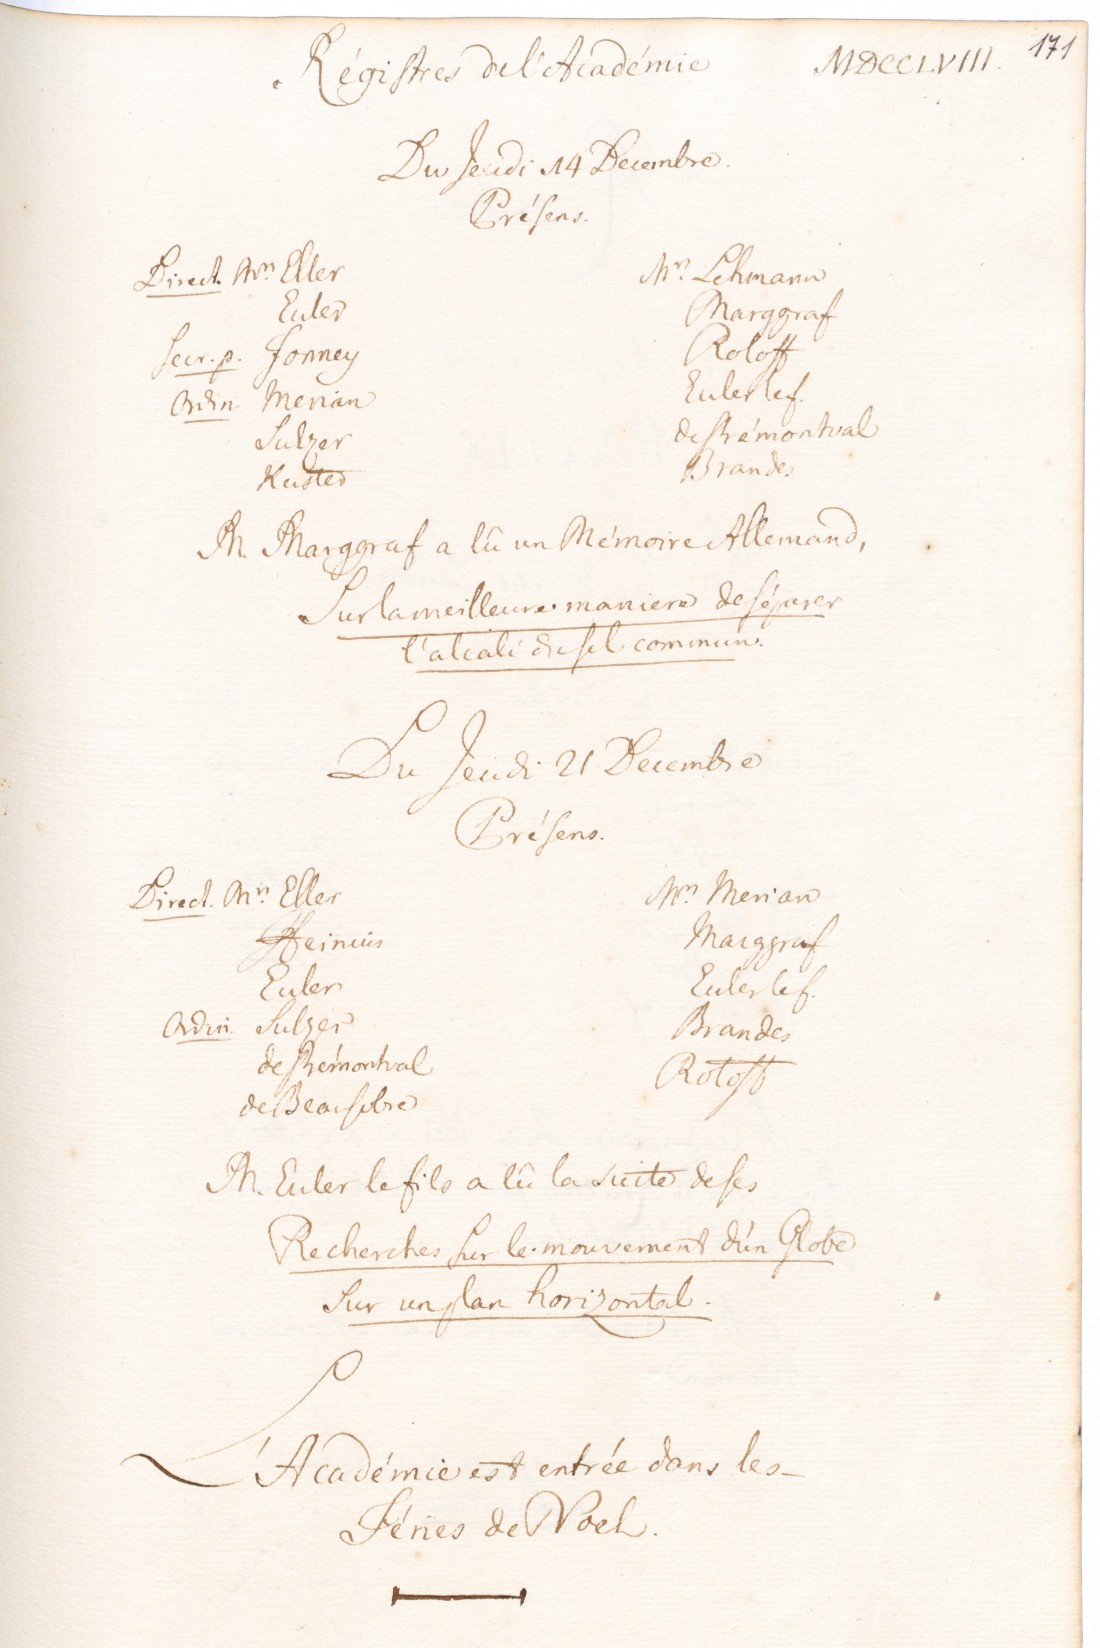 Régistres de l'Académie MDCCLVIII. 171
Du Jeudi 14 Decembre.
Présens.
Direct. Mrs Eller
Euler
Secr. p. Formey
Ordin. Merian
Sulzer
Kuster
Mrs Lehmann
Marggraf
Roloff
Euler le f.
de Prémontval
Brandes
M. Marggraf a lû un Mémoire Allemand,
Sur la meilleure maniere de séparer
l'alcali du sel commun.
Du Jeudi 21 Decembre
Présens.
Direct. Mrs Eller
Heinius
Euler
Ordin. Sulzer
de Prémontval
de Beausobre
Mrs Merian
Marggraf
Euler le f.
Brandes
Roloff
M. Euler le fils a lû la suite de ses
Recherches sur le mouvement d'un Globe
sur un plan horizontal.
L'Académie est entrée dans les
Féries de Noel.